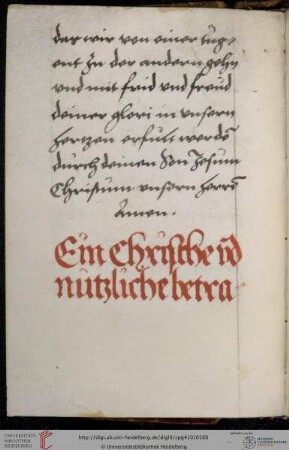 das wir von einer tug=
ent zu der andern gehn
vnd mit frid vnd freud
deiner glori in vnsern
hertzen erfult werdē
durch deinen Son Jesum
Christum vnsern herrē
Amen.
Ein Christliche vñ
nutzliche betra=
UNIVERSITÄTS-
BIBLIOTHEK
HEIDELBERG
http://digi.ub.uni-heidelberg.de/diglit/cpg410/0160
© Universitätsbibliothek Heidelberg